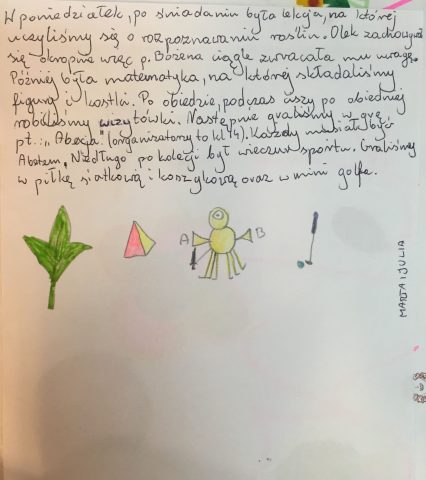 W poniedziałek, po śniadaniu była lekcja, na której
uczyliśmy się o rozpoznawaniu roślin. Olek zachowywał
się okropnie więc p. Bożena ciągle zwracała mu uwagę.
Później była matematyka, na której składaliśmy
figury i kostki. Po obiedzie, podczas ciszy po obiedniej
robiliśmy wizytówki. Następnie graliśmy w grę
pt.: "Abecja" (organizatorzy to kl. 4). Każdy musiał być
Abatem. Niedługo po kolacji był wieczur sportu. Graliśmy
w piłkę siatkową i koszykową oraz w mini golfa.
A B
MARTA I JULIA